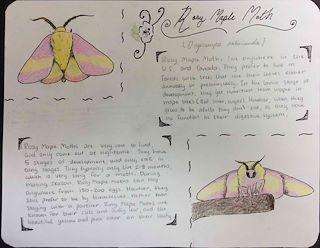 Rosy Maple Moth
(Dryocampa rubicunda)
Rosy Maple Moths live anywhere in the
U.S and Canada. They prefer to live in
forests with trees that lose their leaves either
annually or prematurely. In the larva stage of
development, they get nutrition from
maple trees (Red, silver, sugar). However, when they
grow to be adults they don't eat, as they have
no function in their digestive system.
Rosy Maple Moths are very kind,
and only come out at nighttime. They have
5 stages of development, and only eat in
early stages. They typically only live 2-9 months,
which is very long for a moth. During
mating season, Rosy Maple moths can lay
anywhere from 150-200 eggs. However, they
also prefer to be by themselves rather than
staying with a partner. Rosy Maple Moths are
known for their cute and fuzzy fur, and the
beautiful yellow and pink color on their body.